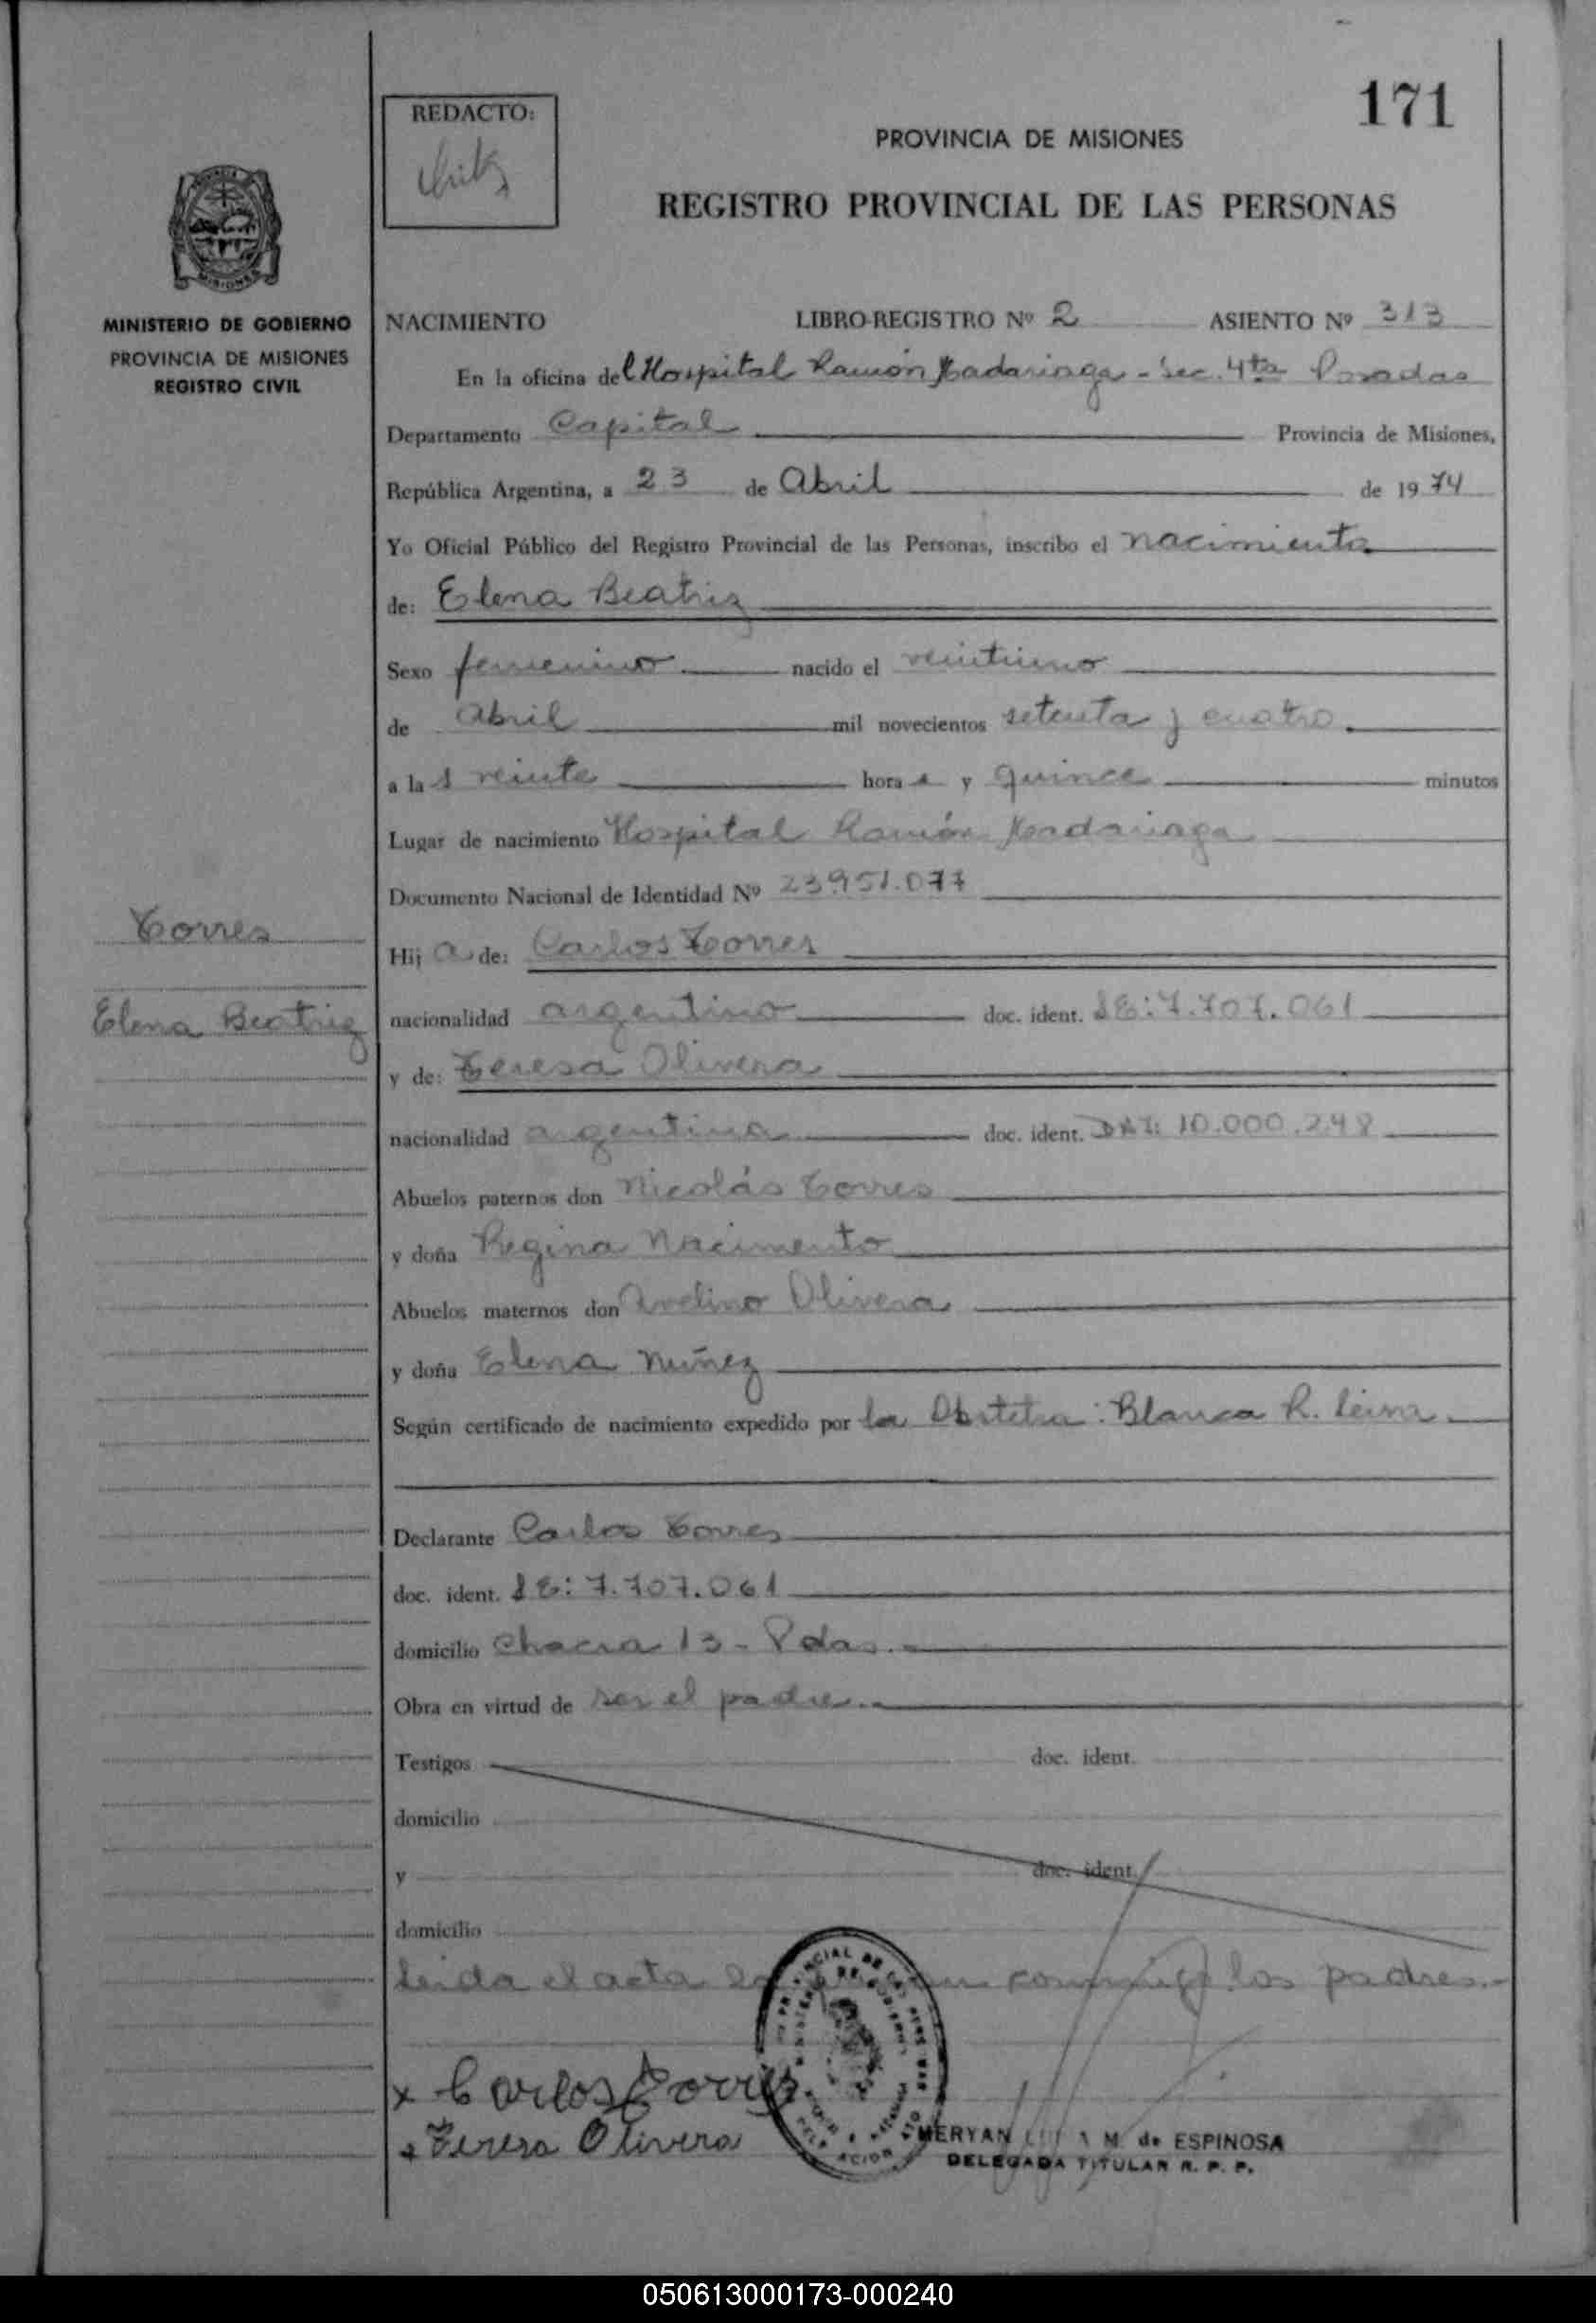 171
REDACTO:
PROVINCIA DE MISIONES
REGISTRO PROVINCIAL DE LAS PERSONAS
MISIONES
MINISTERIO DE GOBIERNO
PROVINCIA DE MISIONES
REGISTRO CIVIL
NACIMIENTO LIBRO-REGISTRO Nº 2 ASIENTO Nº 313
En la oficina del Hospital Ramón Madariaga - Sec. 4ta Posadas
Departamento Capital Provincia de Misiones,
República Argentina, a 23 de Abril de 1974
Yo Oficial Público del Registro Provincial de las Personas, inscribo el nacimiento
de: Elena Beatriz
Sexo femenino nacido el veintiuno
de abril mil novecientos setenta y cuatro.
a las veinte horas y quince minutos
Lugar de nacimiento Hospital Ramón Madariaga
Documento Nacional de Identidad Nº 23.951.077
Torres
Hija de: Carlos Torres
Elena Beatriz
nacionalidad argentino doc. ident. LE: 7.707.061
y de: Teresa Olivera
nacionalidad argentina doc. ident. DNI: 10.000.248
Abuelos paternos don Nicolás Torres
y doña Regina Nacimento
Abuelos maternos don Avelino Olivera
y doña Elena Nuñez
Según certificado de nacimiento expedido por la Obstetra: Blanca R. Leiva.
Declarante Carlos Torres
doc. ident. LE: 7.707.061
domicilio Chacra 13 - Pdas.-
Obra en virtud de ser el padre.-
Testigos doc. ident.
domicilio
y doc. ident.
domicilio
Leida el acta conmigo los padres.-
x Carlos Torres
x Teresa Olivera
MERYAN M. de ESPINOSA
DELEGADA TITULAR R. P. P.
050613000173-000240